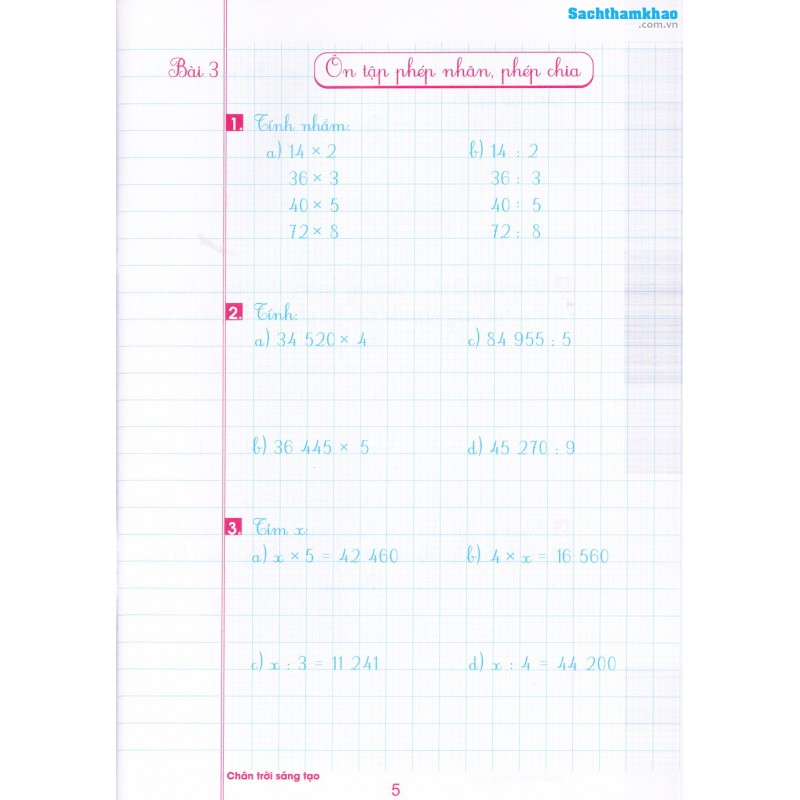 Sachthamkhao
.com.vn
Bài 3
Ôn tập phép nhân, phép chia
1. Tính nhẩm:
a) 14 × 2
b) 14 : 2
36 × 3
36 : 3
40 × 5
40 : 5
72 × 8
72 : 8
2. Tính:
a) 34 520 × 4
c) 84 955 : 5
b) 36 445 × 5
d) 45 270 : 9
3. Tìm x:
a) x × 5 = 42 460
b) 4 × x = 16 560
c) x : 3 = 11 241
d) x : 4 = 44 200
Chân trời sáng tạo
5